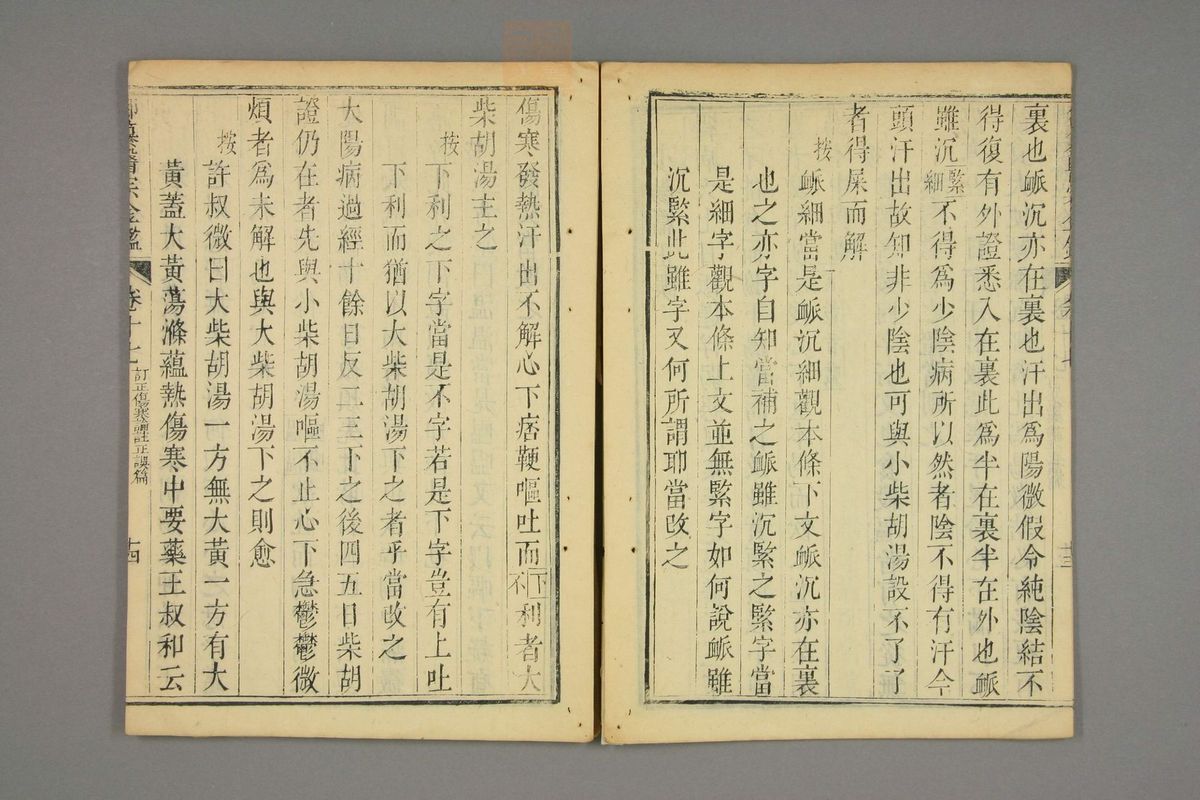 裏也脈沉亦在裏也汗出爲陽微假令純陰結不
得復有外證悉入在裏此爲半在裏半在外也脈
雖沉緊細不得爲少陰病所以然者陰不得有汗今
頭汗出故知非少陰也可與小柴胡湯設不了了
者得屎而解
按脈細當是脈沉細觀本條下文脈沉亦在裏
也之亦字自知當補之脈雖沉緊之緊字當
是細字觀本條上文並無緊字如何說脈雖
沉緊此雖字又何所謂耶當改之
十三
傷寒發熱汗出不解心下痞鞕嘔吐而下不利者大
柴胡湯主之
按下利之下字當是不字若是下字豈有上吐
下利而猶以大柴胡湯下之者乎當改之
大陽病過經十餘日反二三下之後四五日柴胡
證仍在者先與小柴胡湯嘔不止心下急鬱鬱微
煩者爲未解也與大柴胡湯下之則愈
按許叔微曰大柴胡湯一方無大黃一方有大
黃蓋大黃蕩滌蘊熱傷寒中要藥王叔和云
御纂醫宗金鑑 卷十七 訂正傷寒論註正誤篇 十四